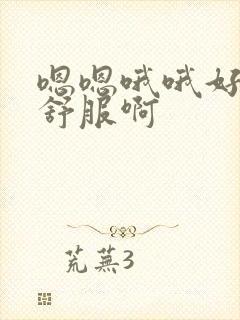 嗯嗯哦哦好
舒服啊
荒蕪3